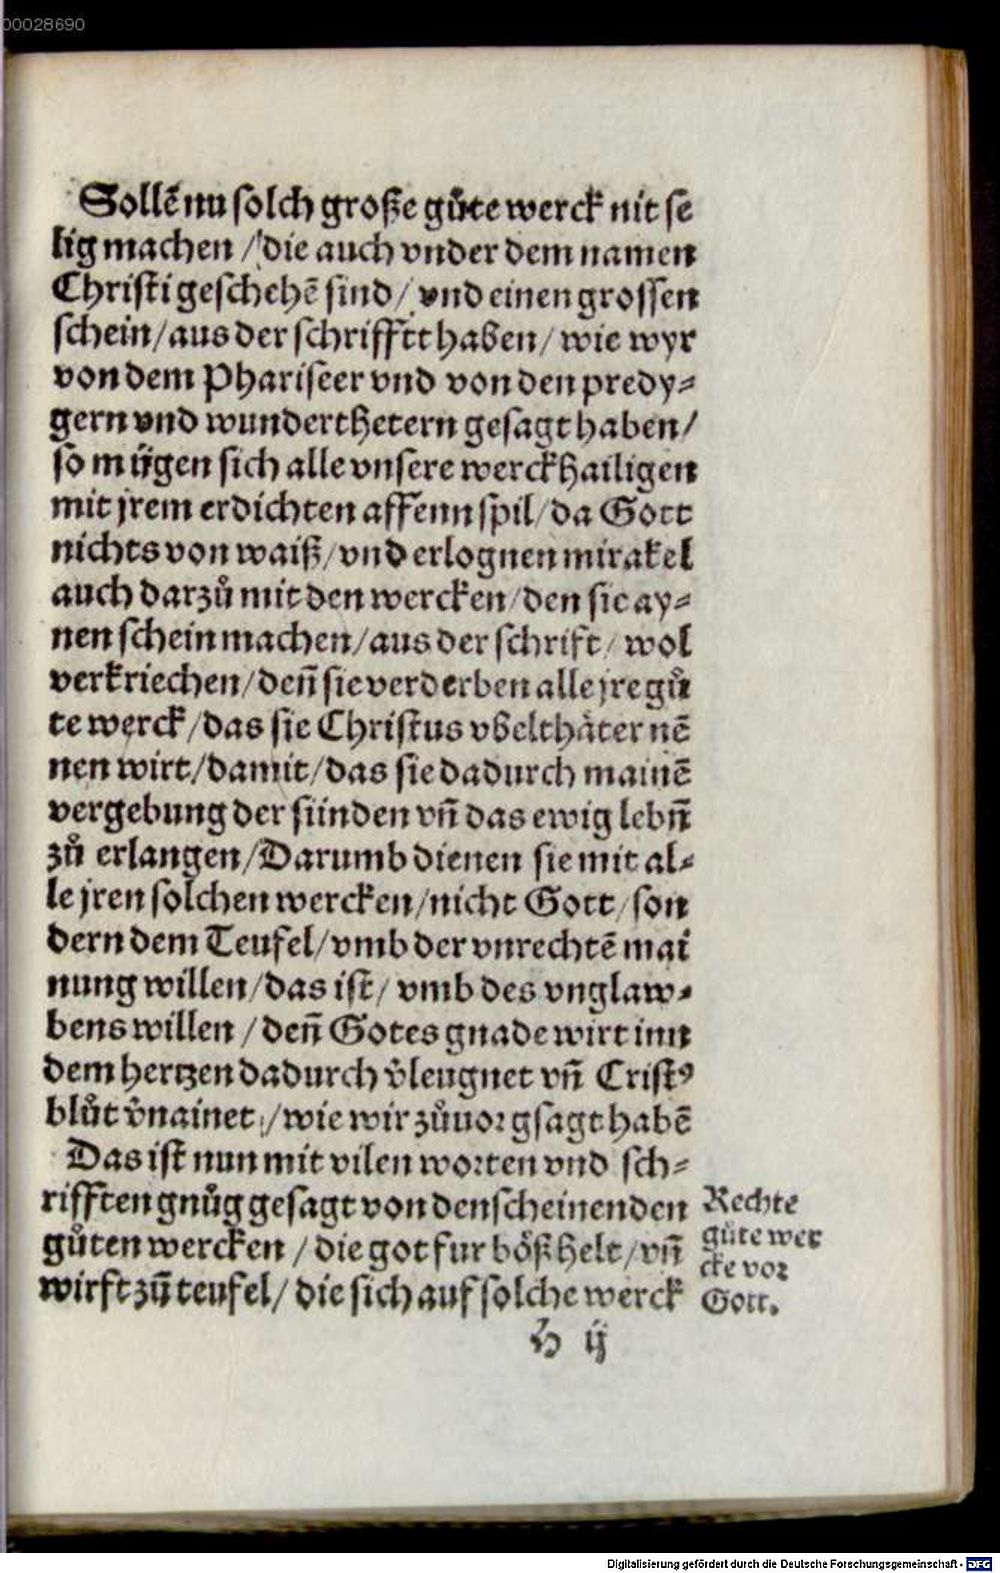 00028690
Sollē nu solch große gůte werck nit se
lig machen / die auch vnder dem namen
Christi geschehē sind / vnd einen grossen
schein / aus der schrifftt haben / wie wyr
von dem Phariseer vnd von den predy⸗
gern vnd wunderthetern gesagt haben /
so mügen sich alle vnsere werckhailigen
mit jrem erdichten affenn spil / da Gott
nichts von waiß / vnd erlognen mirakel
auch darzů mit den wercken / den sie ay⸗
nen schein machen / aus der schrift / wol
verkriechen / deñ sie verderben alle jre gů
te werck / das sie Christus vbelthäter nē
nen wirt / damit / das sie dadurch mainē
vergebung der sünden vñ das ewig lebñ
zů erlangen / Darumb dienen sie mit al⸗
le jren solchen wercken / nicht Gott / son
dern dem Teufel / vmb der vnrechtē mai
nung willen / das ist / vmb des vnglaw⸗
bens willen / deñ Gotes gnade wirt inn
dem hertzen dadurch v̄leugnet vñ Cristꝰ
blůt v̄nainet / wie wir zůuor gsagt habē
Das ist nun mit vilen worten vnd sch⸗
rifften gnůg gesagt von den scheinenden
gůten wercken / die got fur bőß helt / vñ
wirft zū teufel / die sich auf solche werck
Rechte
gůte wer
cke vor
Gott.
H ij
Digitalisierung gefördert durch die Deutsche Forschungsgemeinschaft - DFG